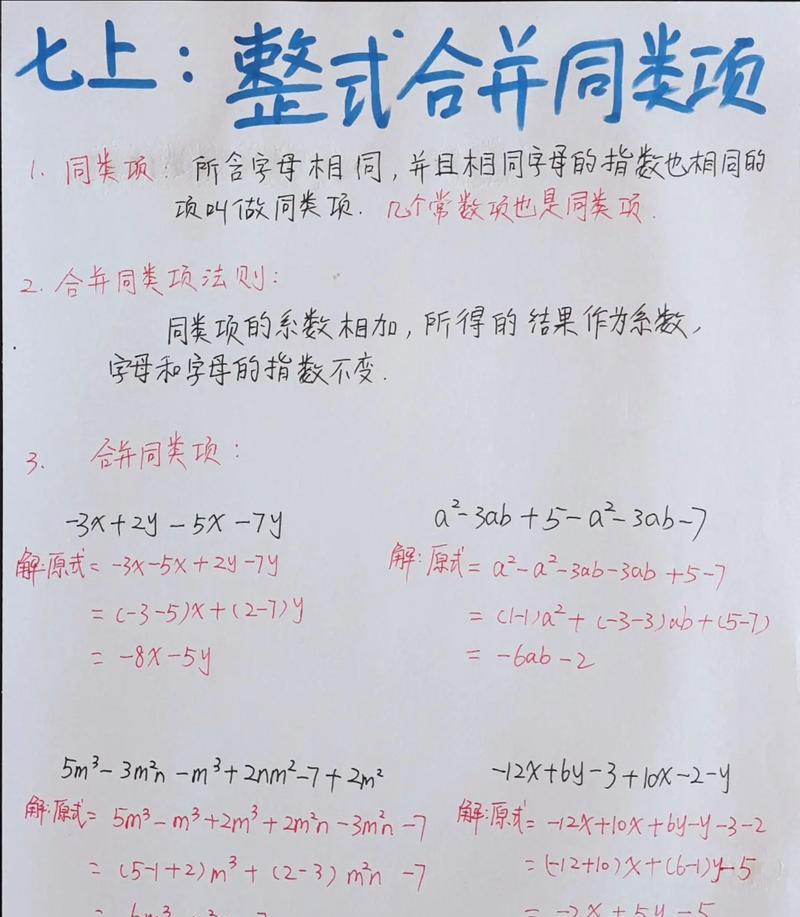 七上：整式合并同类项
1. 同类项：所含字母相同，并且相同字母的指数也相同的
项叫做同类项. 几个常数项也是同类项.
2. 合并同类项法则：
同类项的系数相加，所得的结果作为系数，
字母和字母的指数不变.
3. 合并同类项：
-3x+2y-5x-7y
解：原式= -3x-5x+2y-7y
= (-3-5)x+(2-7)y
= -8x-5y
a²-3ab+5-a²-3ab-7
解：原式= a²-a²-3ab-3ab+5-7
= (1-1)a²+(-3-3)ab+(5-7)
= -6ab-2
5m³-3m²n-m³+2nm²-7+2m²
解：原式= 5m³-m³+2m³+2m²n-3m²n-7
= (5-1+2)m³+(2-3)m²n-7
-12x+6y-3+10x-2-y
解：原式= -12x+10x+6y-y-3-2
= (-12+10)x+(6-1)y-5
= -2x+5y-5